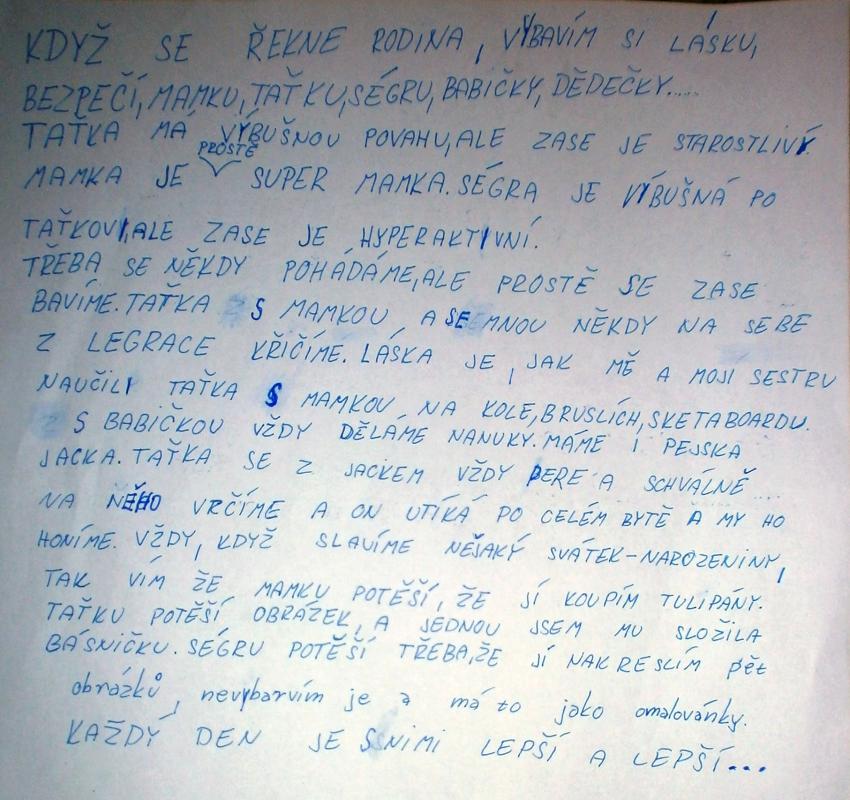 KDYŽ SE ŘEKNE RODINA, VYBAVÍM SI LÁSKU,
BEZPEČÍ, MAMKU, TAŤKU, SÉGRU, BABIČKY, DĚDEČKY.....
TAŤKA MÁ VÝBUŠNOU POVAHU, ALE ZASE JE STAROSTLIVÝ.
MAMKA JE PROSTĚ SUPER MAMKA. SÉGRA JE VÝBUŠNÁ PO
TAŤKOVI, ALE ZASE JE HYPERAKTIVNÍ.
TŘEBA SE NĚKDY POHÁDÁME, ALE PROSTĚ SE ZASE
BAVÍME. TAŤKA S MAMKOU A SE MNOU NĚKDY NA SEBE
Z LEGRACE KŘIČÍME. LÁSKA JE, JAK MĚ A MOJI SESTRU
NAUČILI TAŤKA S MAMKOU NA KOLE, BRUSLÍCH, SKETABOARDU.
S BABIČKOU VŽDY DĚLÁME NANUKY. MÁME I PEJSKA
JACKA. TAŤKA SE Z JACKEM VŽDY PERE A SCHVÁLNĚ
NA NĚHO VRČÍME A ON UTÍKÁ PO CELÉM BYTĚ A MY HO
HONÍME. VŽDY, KDYŽ SLAVÍME NĚJAKÝ SVÁTEK-NAROZENINY,
TAK VÍM ŽE MAMKU POTĚŠÍ, ŽE JÍ KOUPÍM TULIPÁNY.
TAŤKU POTĚŠÍ OBRÁZEK, A JEDNOU JSEM MU SLOŽILA
BÁSNIČKU. SÉGRU POTĚŠÍ TŘEBA, ŽE JÍ NAKRESLÍM pět
obrázků, nevybarvím je a má to jako omalovánky.
KAŽDÝ DEN JE S NIMI LEPŠÍ A LEPŠÍ...